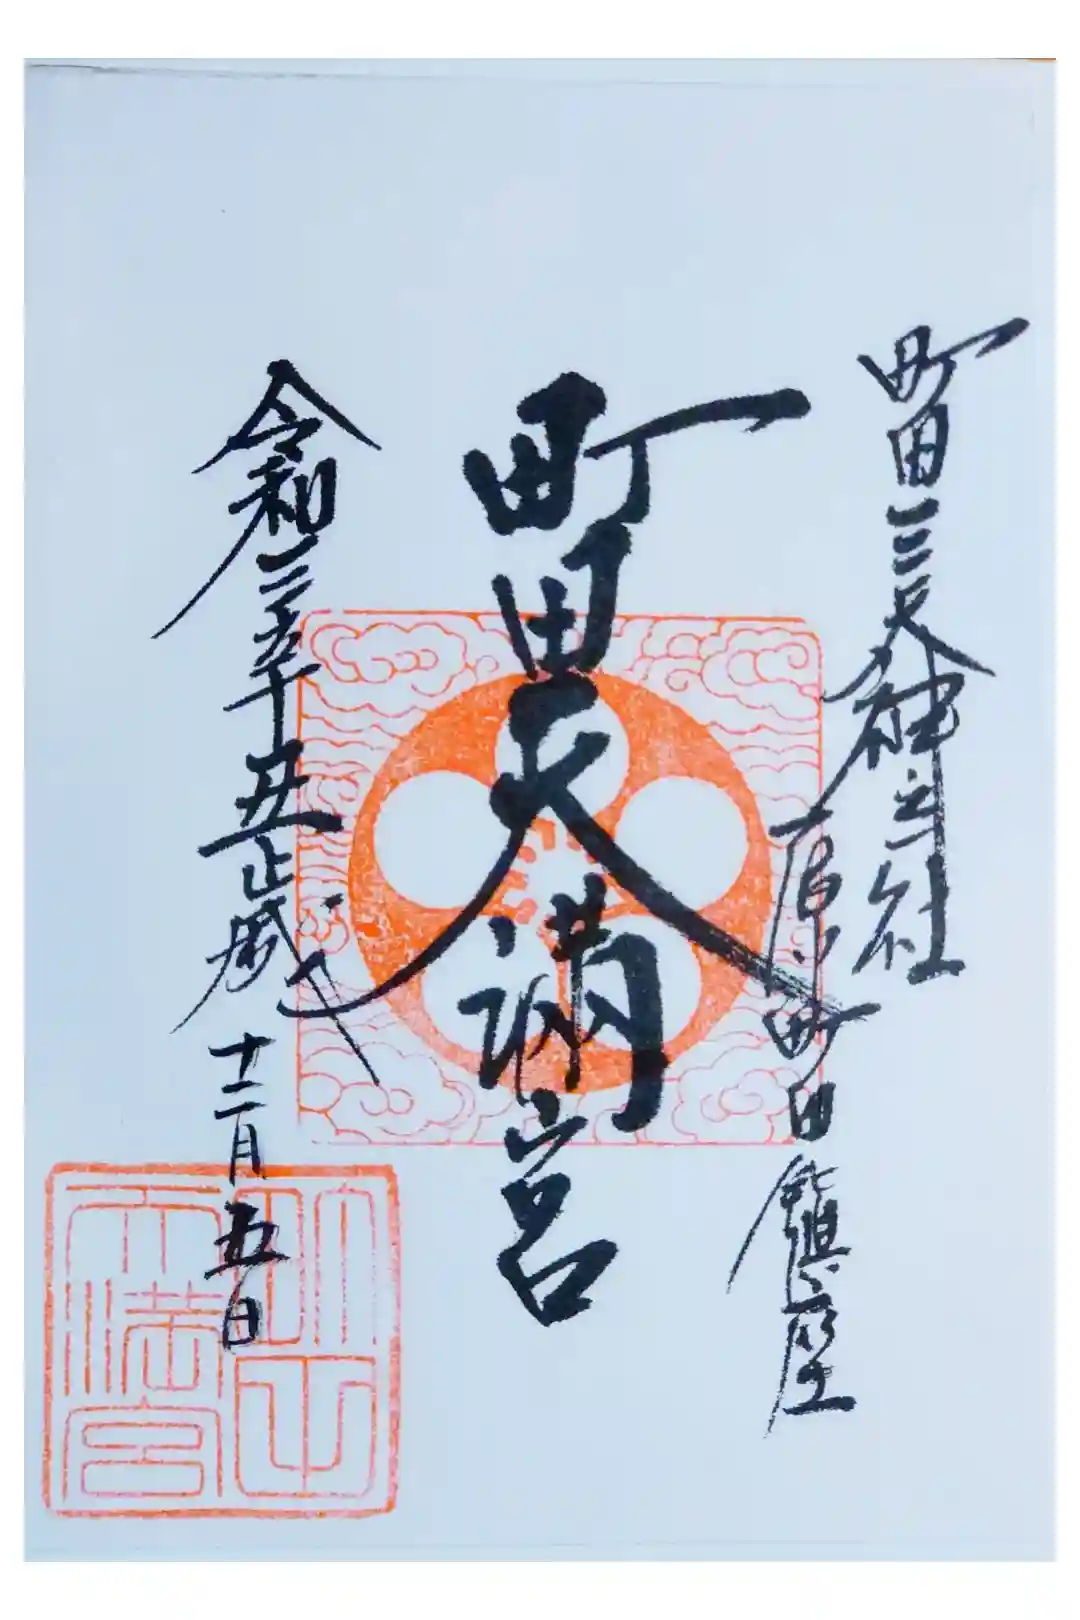 町田三天神之社
原町田鎮座
町田天満宮
令和三年辛丑歳
十二月五日
町田天満宮